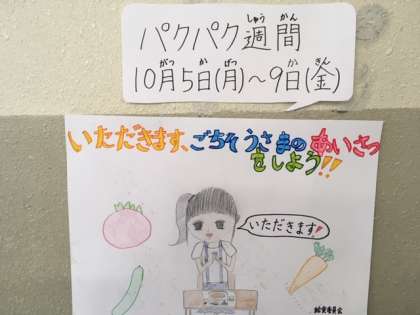 パクパク週間
しゅうかん
10月5日(月)～9日(金)
がつ か げつ か きん
いただきます、ごちそうさまの あいさつ
をしよう!!
いただきます!
給食委員会